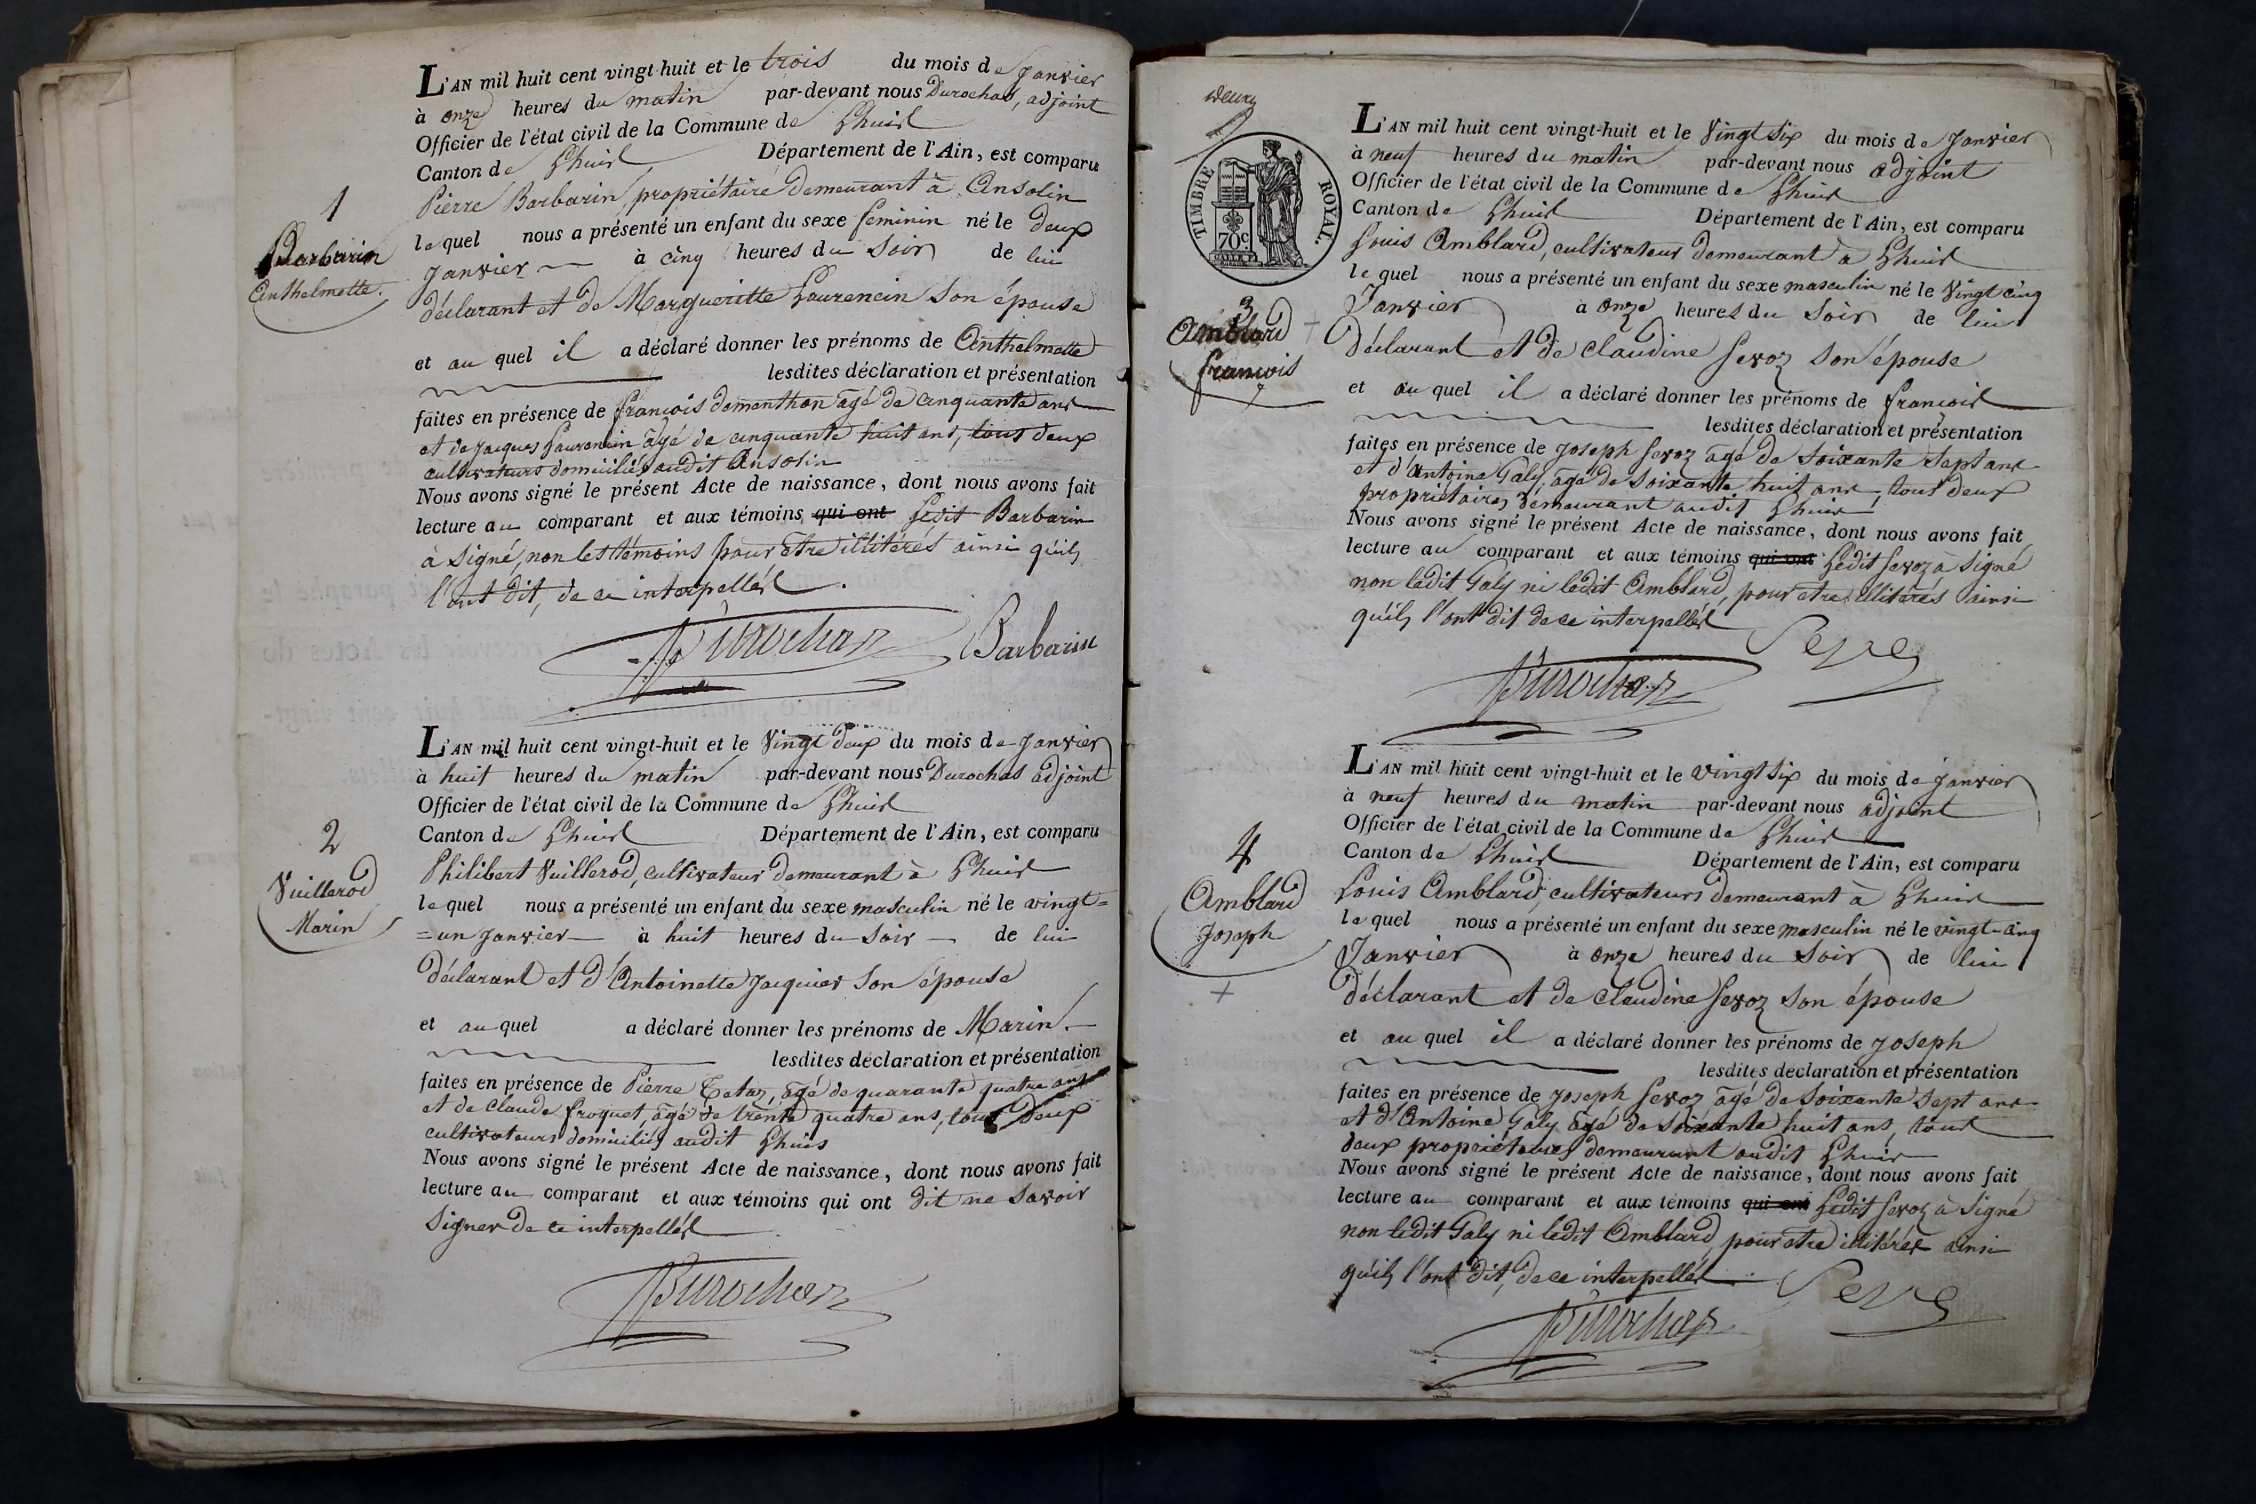 L'AN mil huit cent vingt-huit et le trois du mois de Janvier
à onze heures du matin par-devant nous Durochas, adjoint
Officier de l'état civil de la Commune de Lhuis
Canton de Lhuis Département de l'Ain, est comparu
Pierre Barbarin, propriétaire demeurant à Ansolin
lequel nous a présenté un enfant du sexe feminin né le deux
Janvier à cinq heures du Soir de lui
déclarant et de Margueritte Laurencin Son épouse
et au quel il a déclaré donner les prénoms de Anthelmette
lesdites déclaration et présentation
faites en présence de françois dementhon agé de cinquante ans
et de Jacques Laurencin agé de cinquante huit ans, tous deux
cultivateurs domiciliés audit Ansolin
Nous avons signé le présent Acte de naissance, dont nous avons fait
lecture au comparant et aux témoins qui ont Ledit Barbarin
à Signé, non les témoins pour être illitérés ainsi qu'ils
l'ont dit, de ce interpellés.
Durochas Barbarin
1
Barbarin
Anthelmette.
L'AN mil huit cent vingt-huit et le Vingt deux du mois de Janvier
à huit heures du matin par-devant nous Durochas adjoint
Officier de l'état civil de la Commune de Lhuis
Canton de Lhuis Département de l'Ain, est comparu
Philibert Vuillerod, cultivateur demeurant à Lhuis
lequel nous a présenté un enfant du sexe masculin né le vingt=
=un Janvier à huit heures du Soir de lui
déclarant et d'Antoinette Jacquier Son épouse
et au quel a déclaré donner les prénoms de Marin.
lesdites déclaration et présentation
faites en présence de Pierre Tetaz, agé de quarante quatre ans
et de Claude froquet, agé de trente quatre ans, tous deux
cultivateurs domiciliés audit Lhuis
Nous avons signé le présent Acte de naissance, dont nous avons fait
lecture au comparant et aux témoins qui ont dit ne Savoir
Signer de ce interpellés
Durochas
2
Vuillerod
Marin
TIMBRE ROYAL.
70c
L'AN mil huit cent vingt-huit et le Vingt Six du mois de Janvier
à neuf heures du matin par-devant nous adjoint
Officier de l'état civil de la Commune de Lhuis
Canton de Lhuis Département de l'Ain, est comparu
Louis Amblard, cultivateur demeurant à Lhuis
lequel nous a présenté un enfant du sexe masculin né le Vingt cinq
Janvier à onze heures du Soir de lui
déclarant et de Claudine Sevoz Son épouse
et au quel il a déclaré donner les prénoms de françois
lesdites déclaration et présentation
faites en présence de Joseph Sevoz agé de Soixante Sept ans
et d'Antoine Galy, agé de Soixante huit ans, tous deux
propriétaires demeurant audit Lhuis
Nous avons signé le présent Acte de naissance, dont nous avons fait
lecture au comparant et aux témoins qui ont Ledit Sevoz à Signé
non ledit Galy ni ledit Amblard, pour etre illitérés ainsi
qu'ils l'ont dit de ce interpellés
Durochas
3
Amblard
françois
L'AN mil huit cent vingt-huit et le vingt Six du mois de Janvier
à neuf heures du matin par-devant nous adjoint
Officier de l'état civil de la Commune de Lhuis
Canton de Lhuis Département de l'Ain, est comparu
Louis Amblard, cultivateurs demeurant à Lhuis
lequel nous a présenté un enfant du sexe masculin né le vingt-cinq
Janvier à onze heures du Soir de lui
déclarant et de Claudine Sevoz Son épouse
et au quel il a déclaré donner les prénoms de Joseph
lesdites déclaration et présentation
faites en présence de Joseph Sevoz agé de Soixante Sept ans
et d'Antoine Galy agé de Soixante huit ans, tous
deux propriétaires demeurant audit Lhuis
Nous avons signé le présent Acte de naissance, dont nous avons fait
lecture au comparant et aux témoins qui ont Ledit Sevoz à Signé
non ledit Galy ni ledit Amblard, pour etre illitérés ainsi
qu'ils l'ont dit, de ce interpellés
Durochas
4
Amblard
Joseph